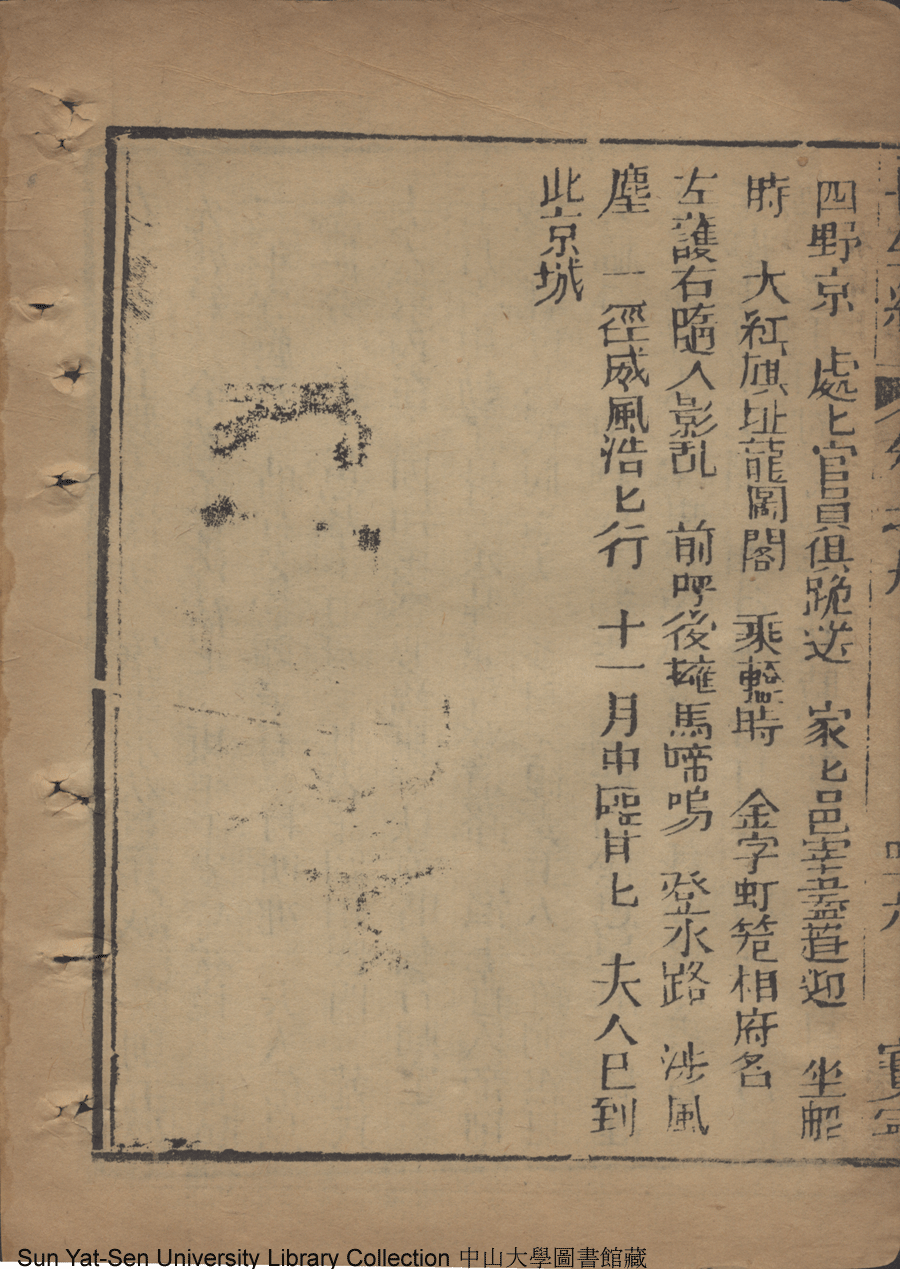 四野京 處匕官員俱跪送 家匕邑宰盡菬迎 坐船
時 大紅旗址龍圖閣 乘轎時 金字虹笼相府名
左護右隨人影乱 前呼後擁馬啼嗚 登水路 涉風
塵 一徑威風浩匕行 十一月中 甘匕 夫人已到
此京城
Sun Yat-Sen University Library Collection 中山大學圖書館藏